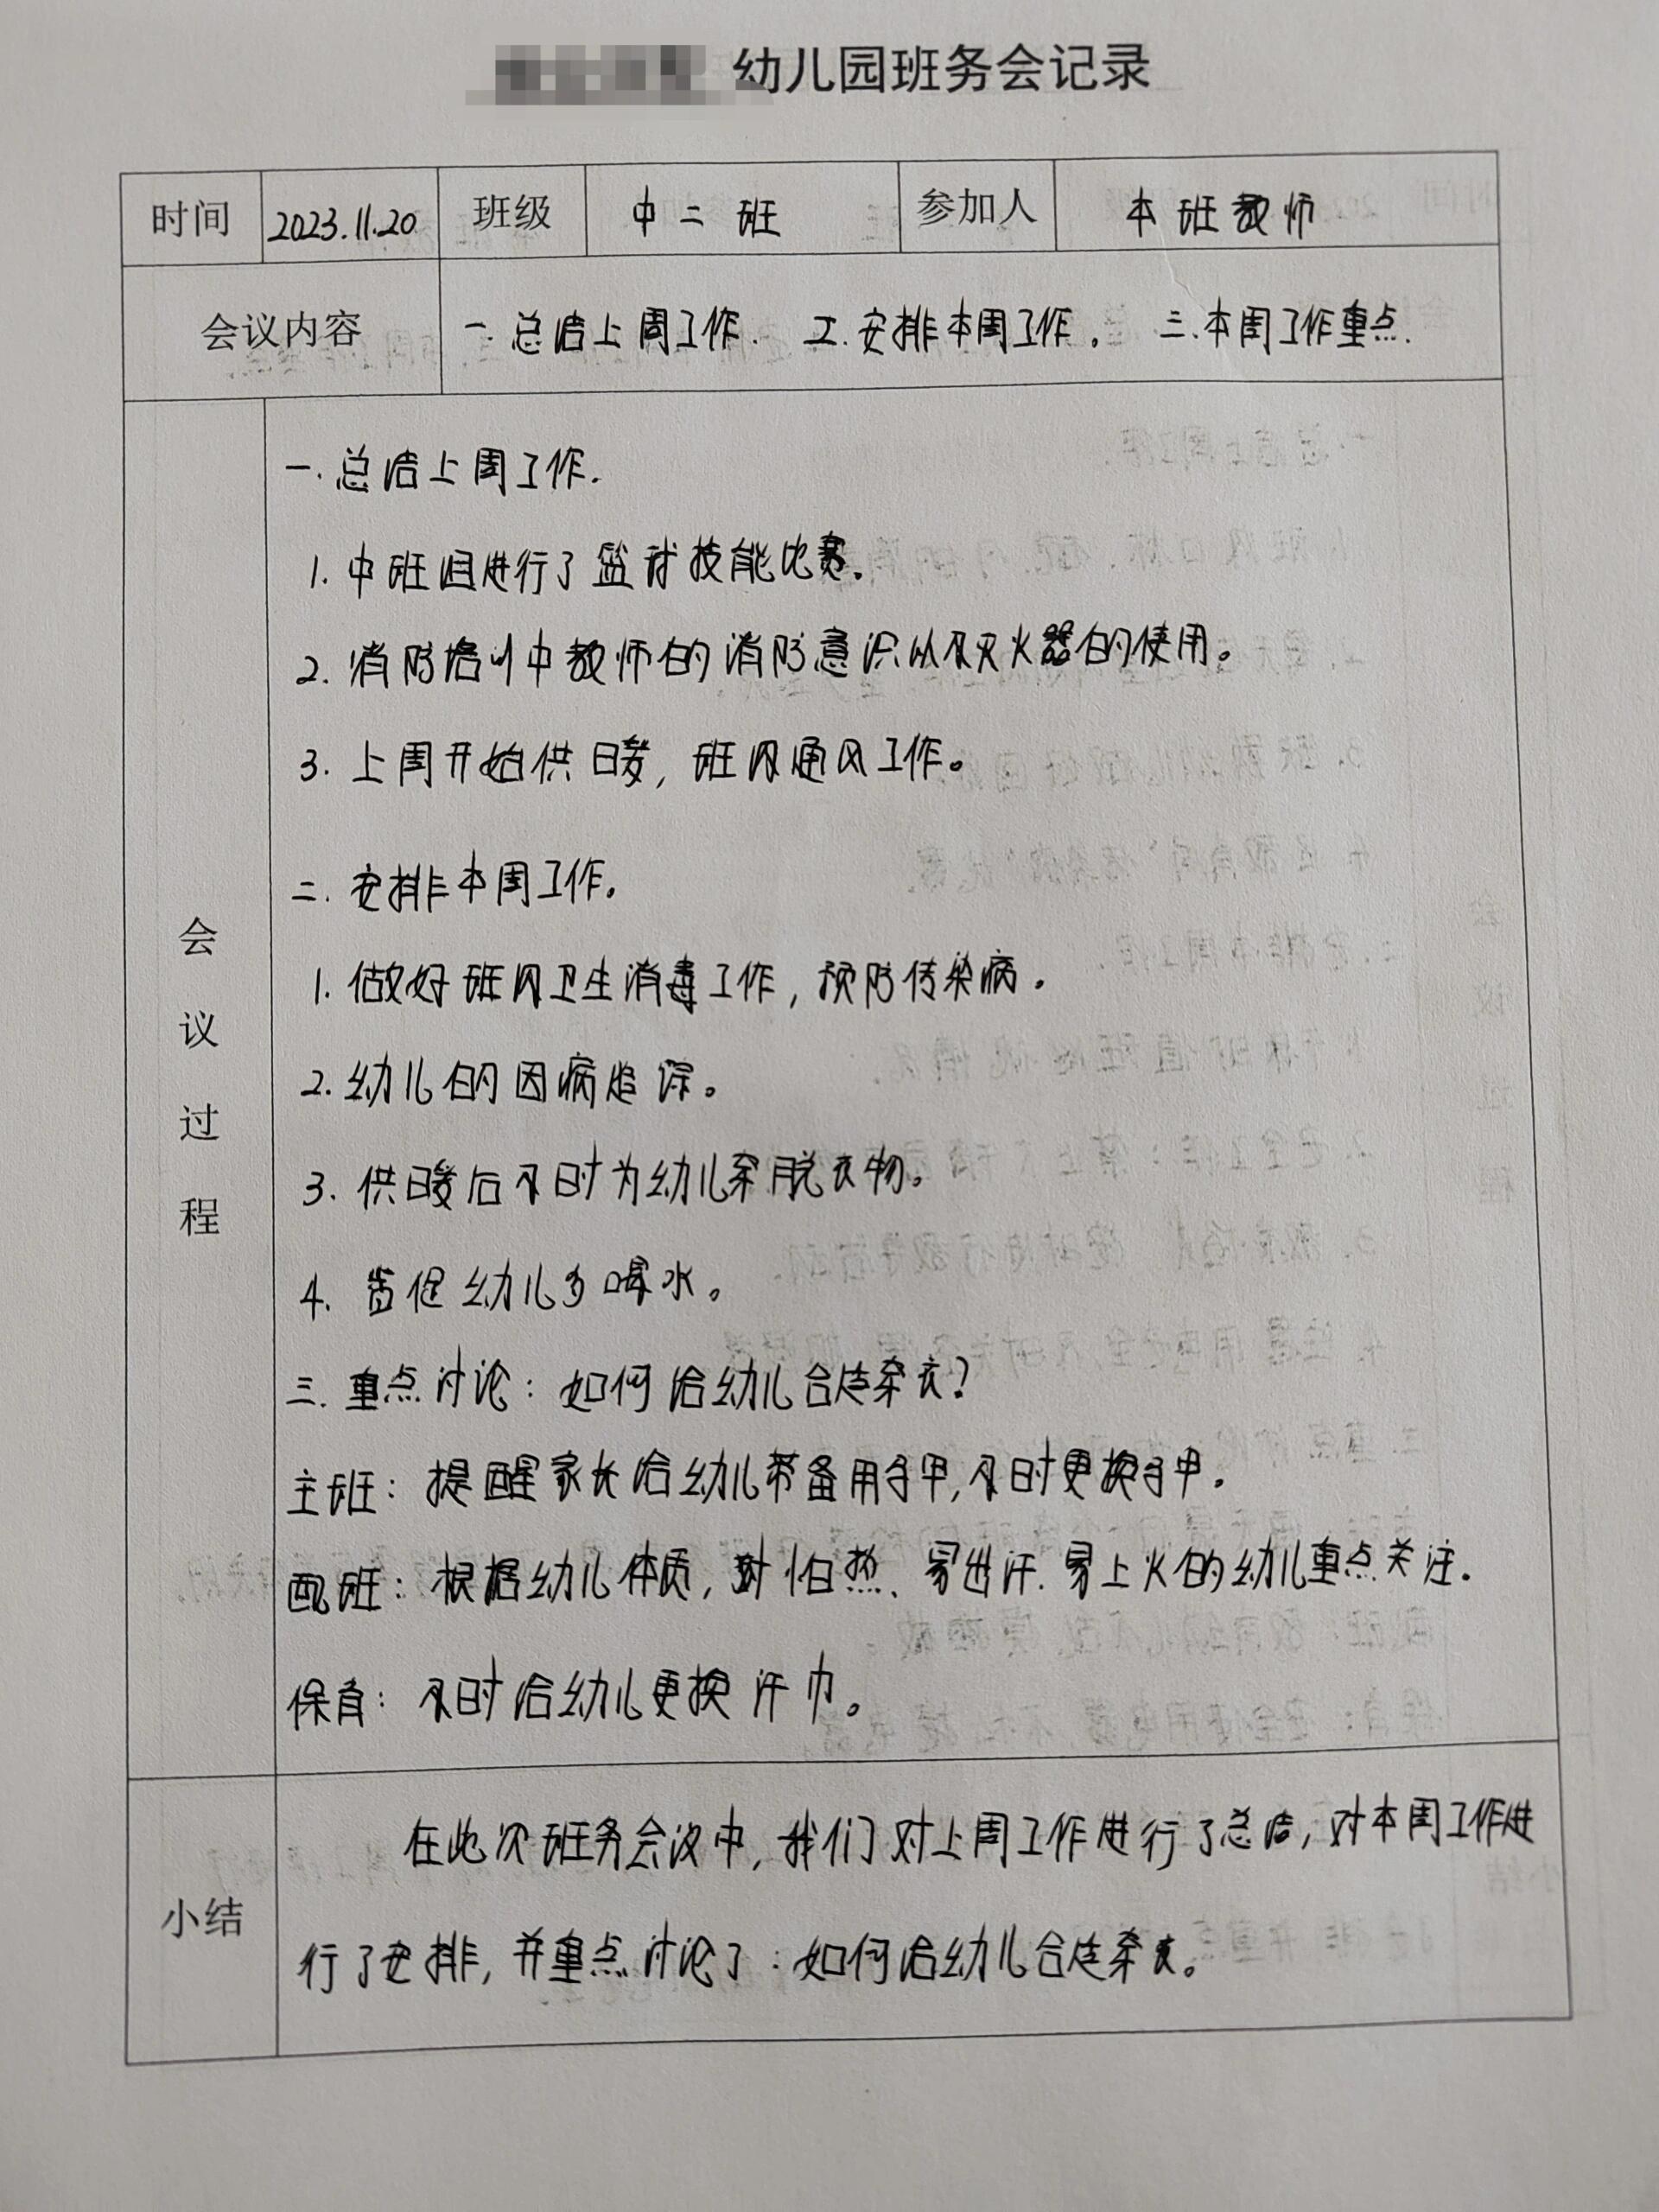 幼儿园班务会记录
时间 2023.11.20 班级 中二班 参加人 本班教师
会议内容 一.总结上周工作. 二.安排本周工作. 三.本周工作重点.
会议过程
一.总结上周工作.
1. 中班组进行了篮球技能比赛。
2. 消防培训中教师的消防意识以及灭火器的使用。
3. 上周开始供暖, 班内通风工作。
二.安排本周工作。
1. 做好班内卫生消毒工作, 预防传染病。
2. 幼儿的因病追踪。
3. 供暖后及时为幼儿穿脱衣物。
4. 督促幼儿多喝水。
三.重点讨论: 如何给幼儿合适穿衣?
主班: 提醒家长给幼儿带备用马甲, 及时更换马甲.
配班: 根据幼儿体质, 对怕热、易出汗.易上火的幼儿重点关注.
保育: 及时给幼儿更换汗巾。
小结
在此次班务会议中, 我们对上周工作进行了总结, 对本周工作进
行了安排, 并重点讨论了: 如何给幼儿合适穿衣。